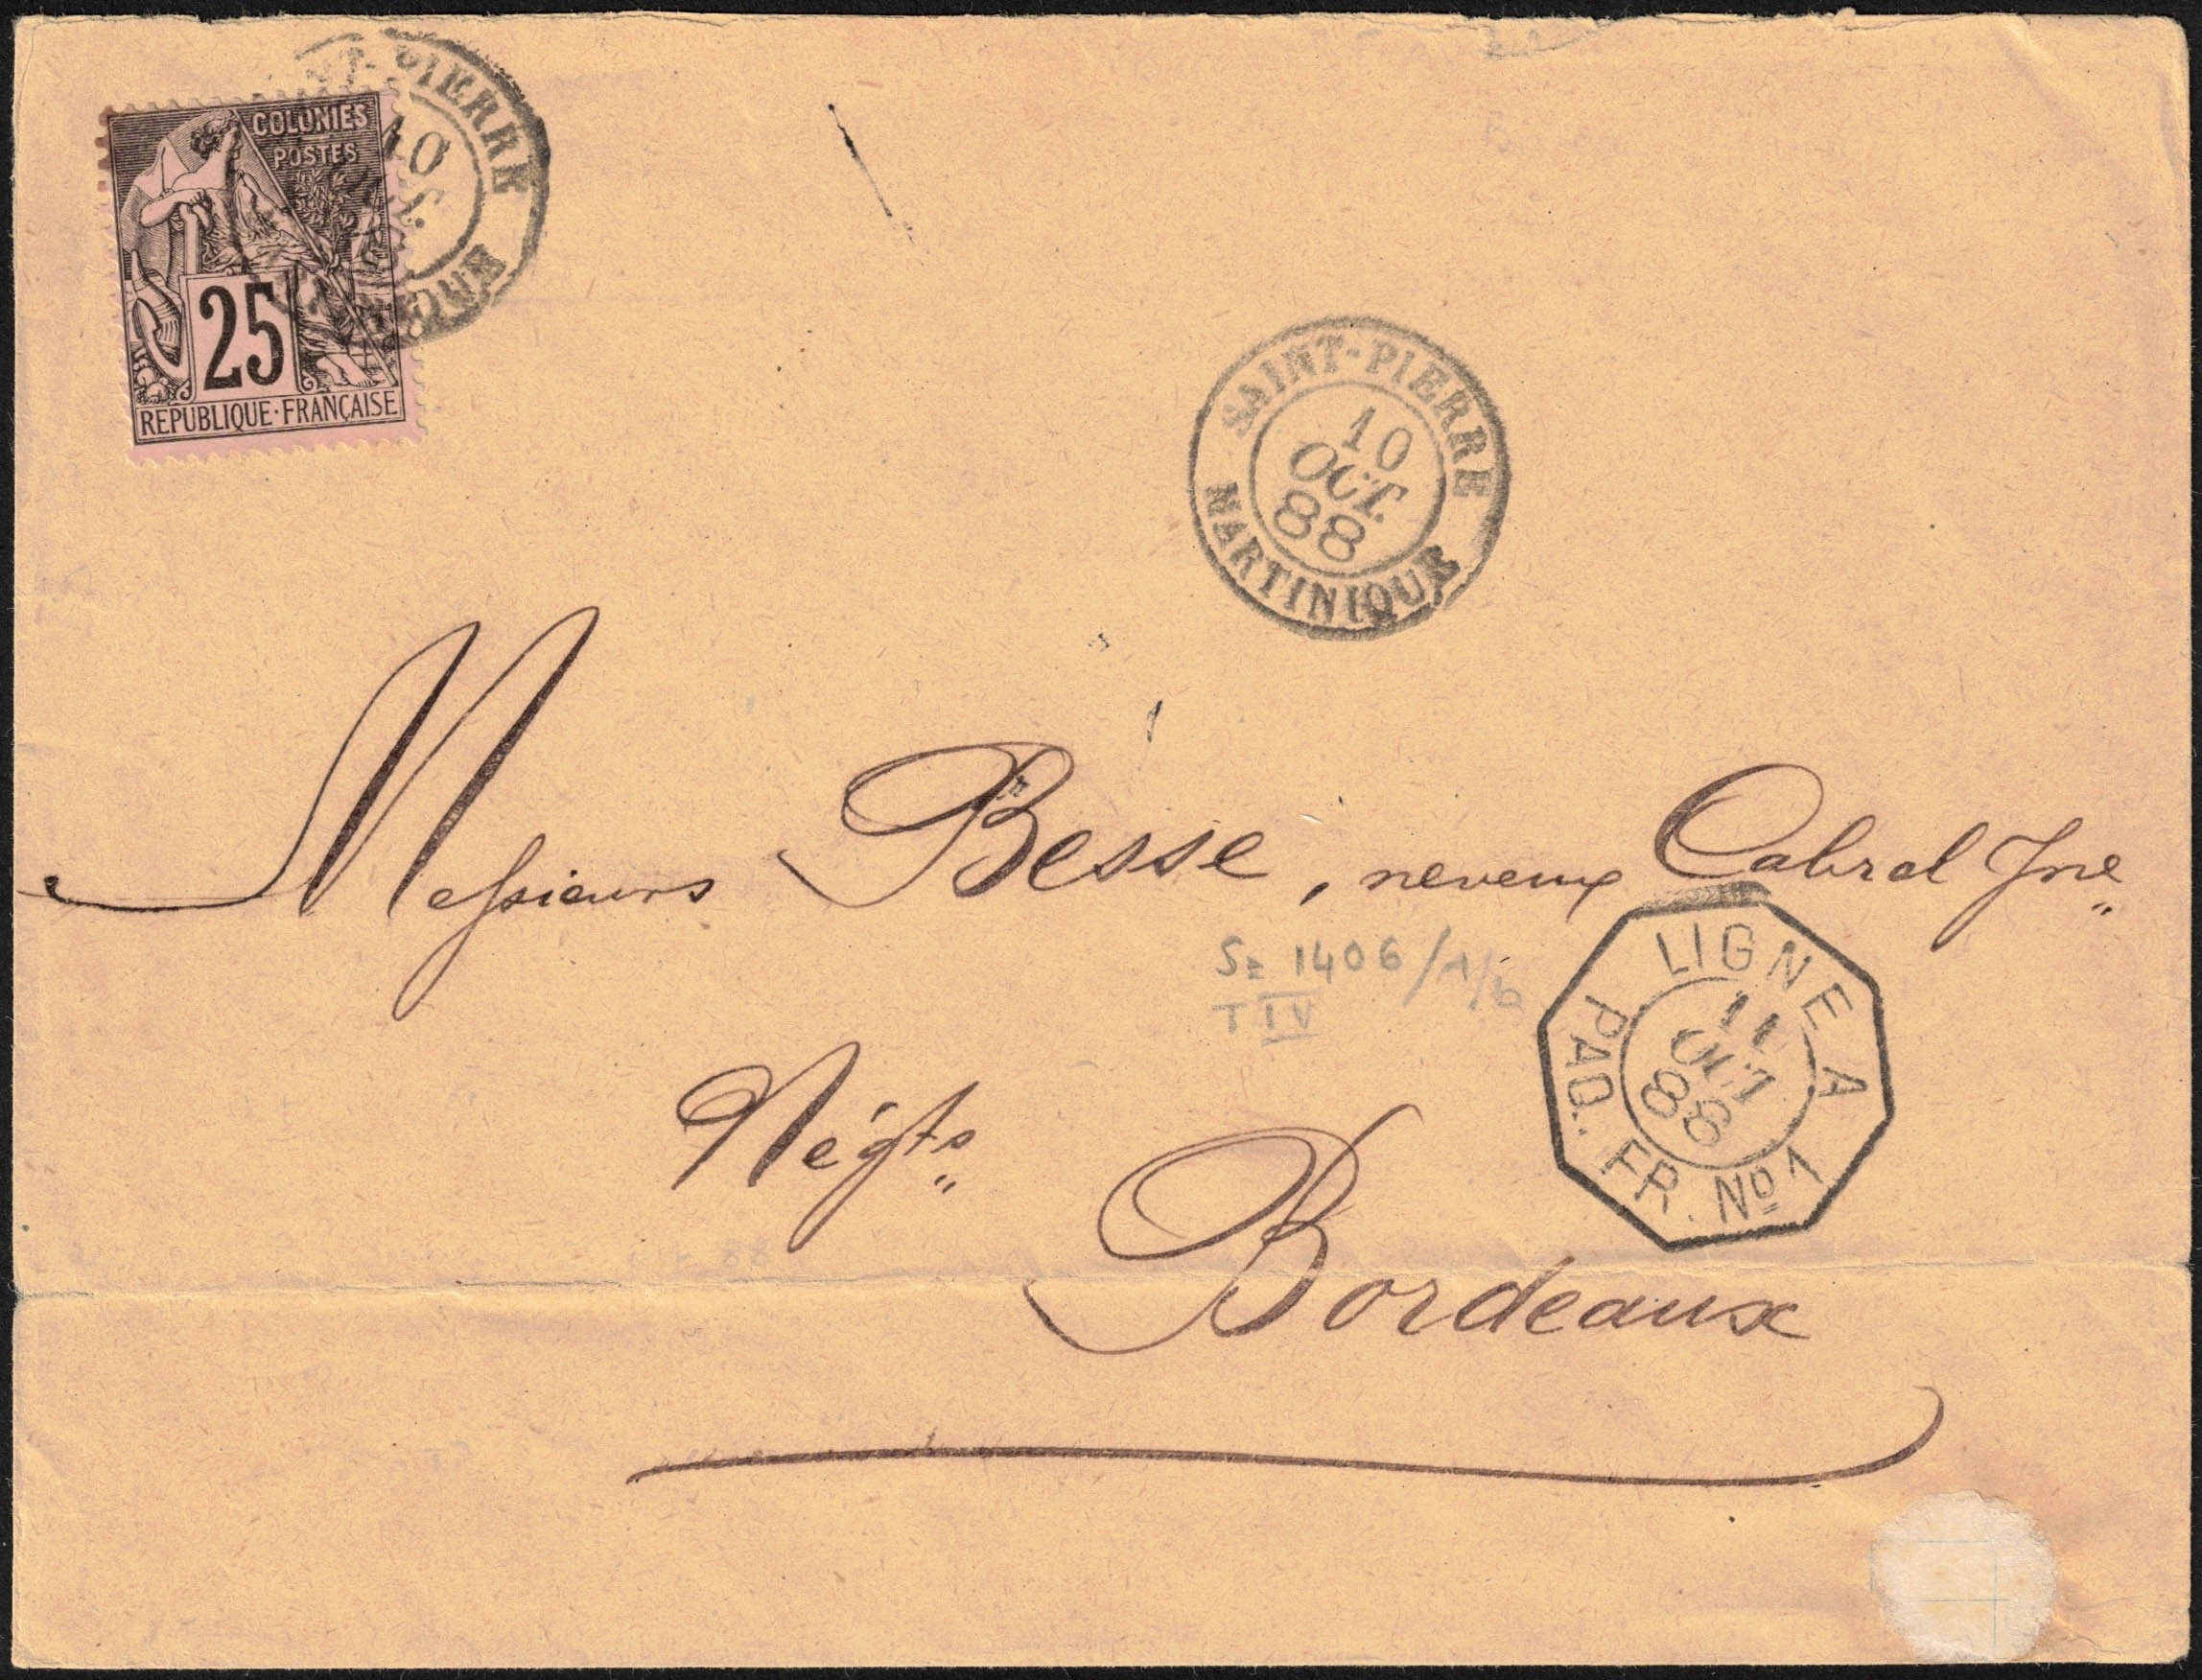 COLONIES
POSTES
25
REPUBLIQUE·FRANÇAISE
10
SAINT-PIERRE
10
OCT.
88
MARTINIQUE
Messieurs Besse, neveux Cabrol Jne
Sz 1406/1/b
T IV
Négts
Bordeaux
LIGNE A
11
OCT
88
PAQ. FR. No 1